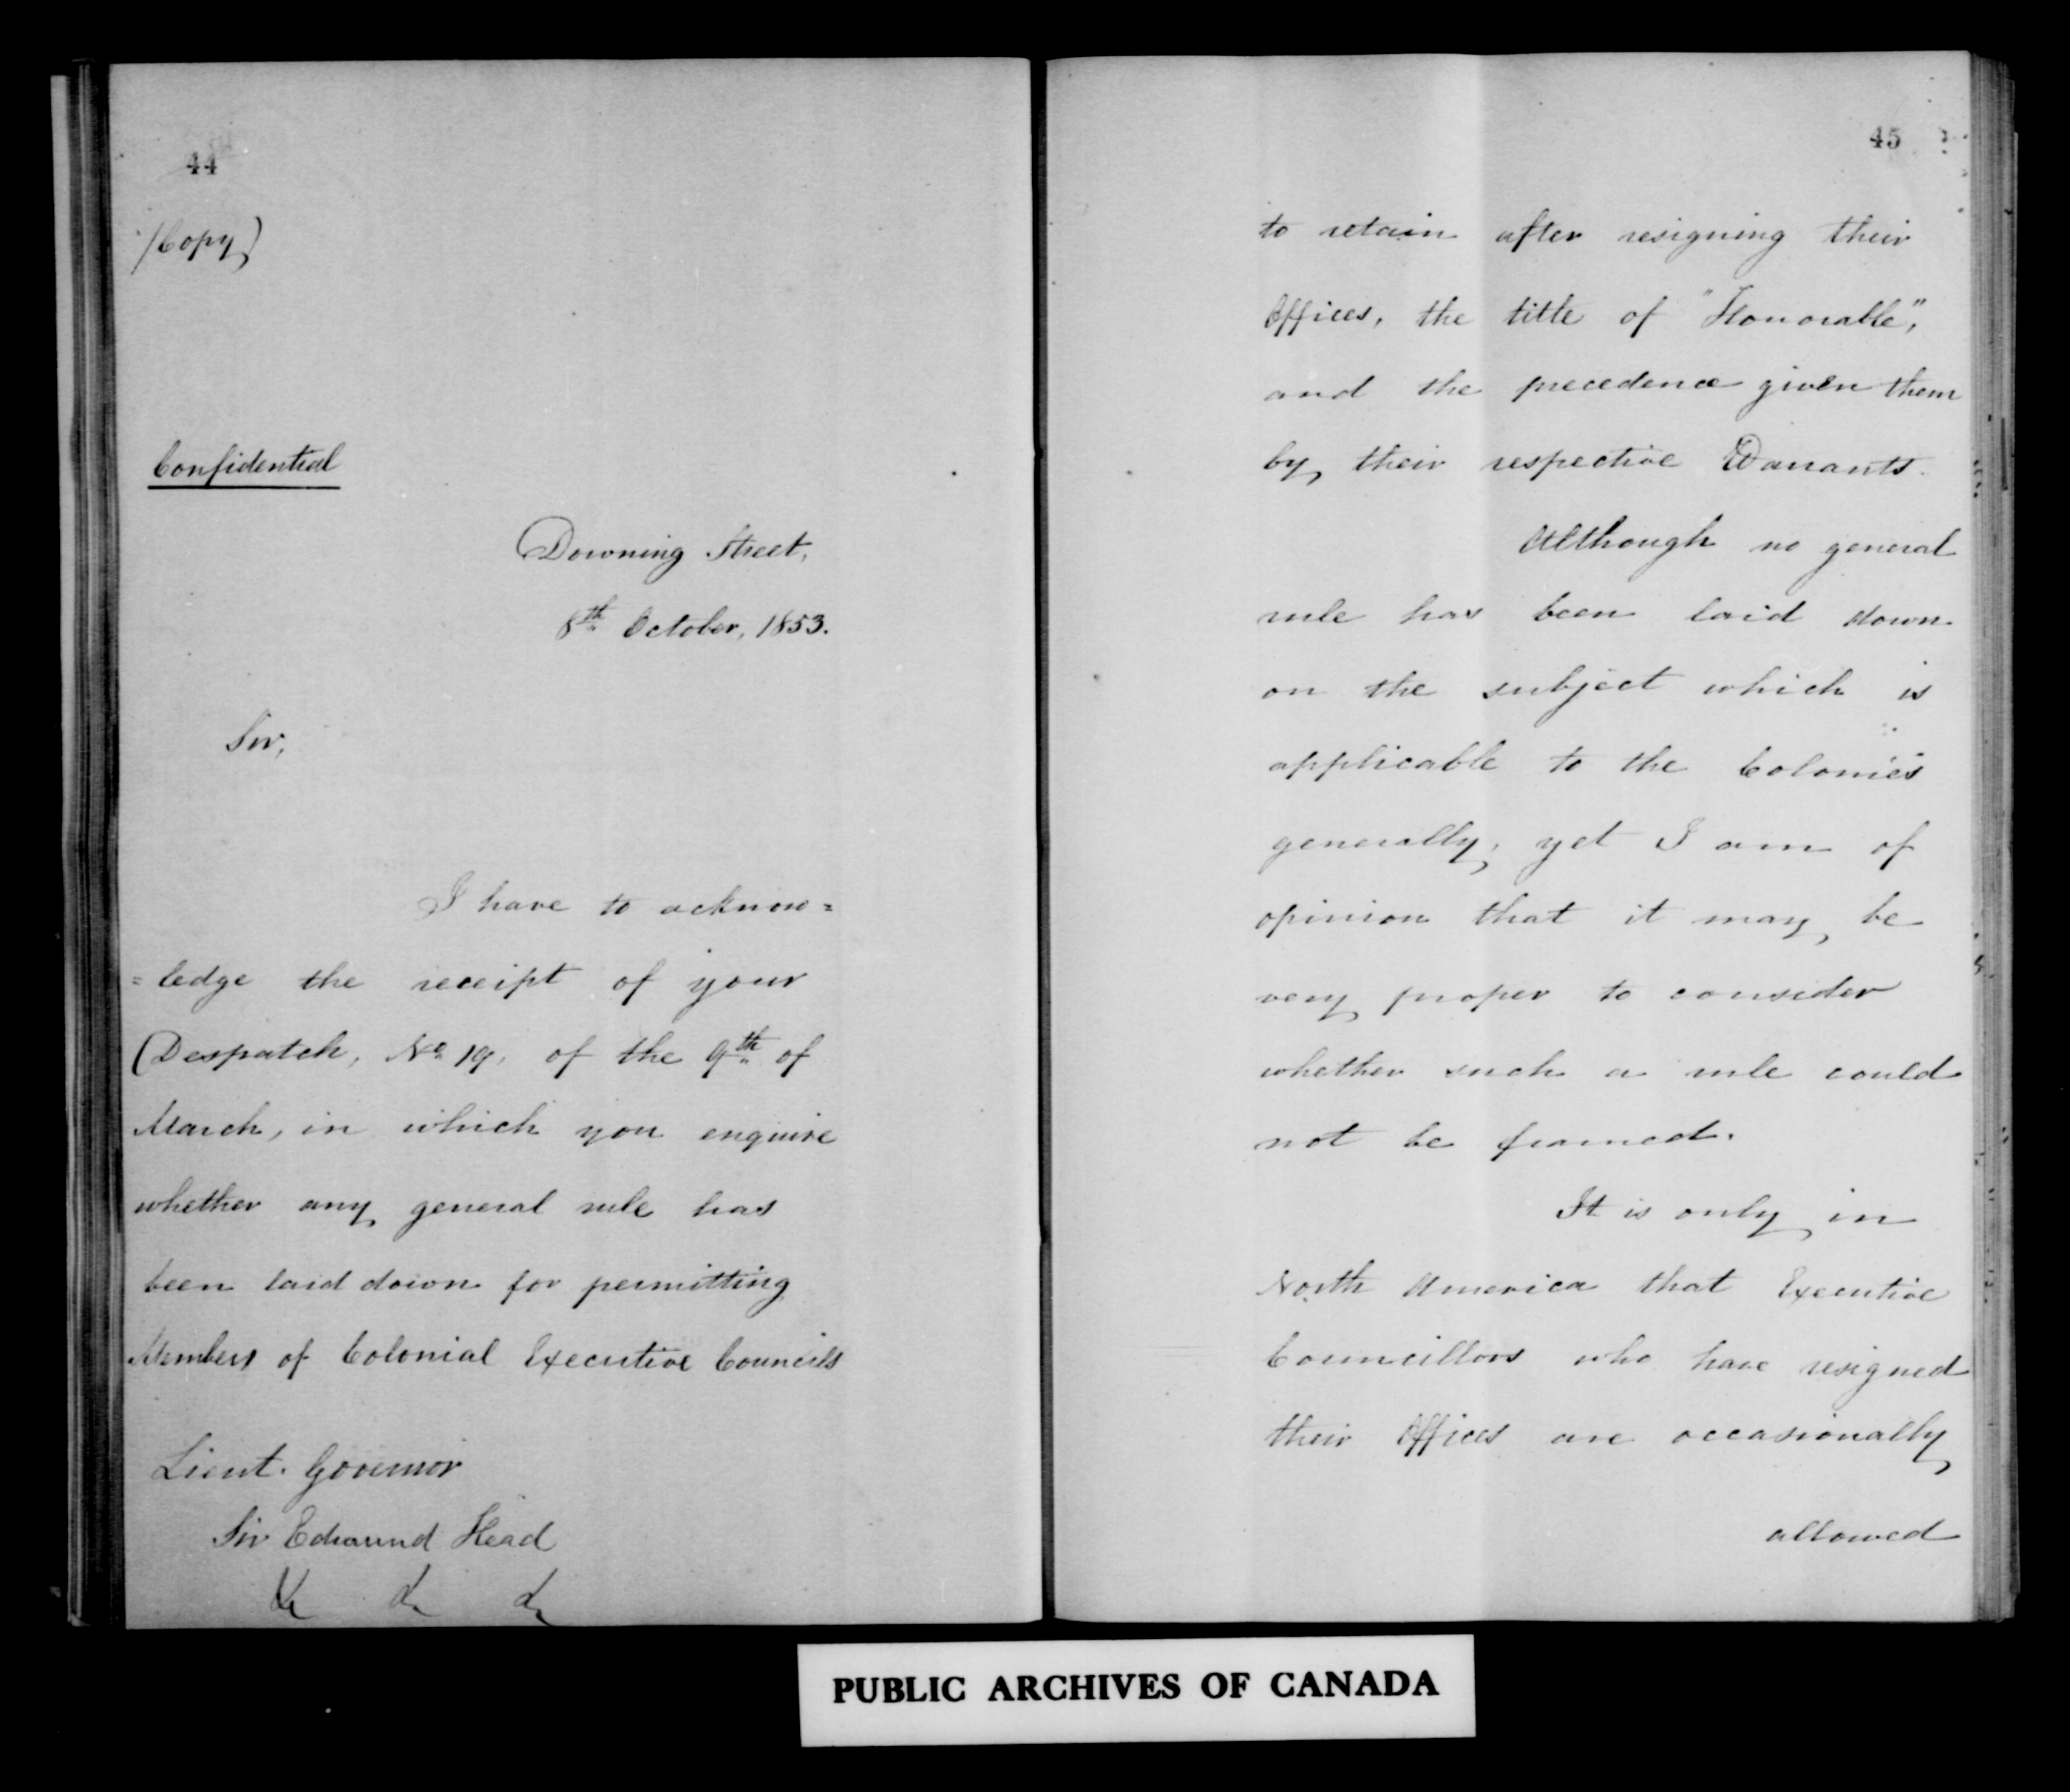 44
(Copy)
Confidential
Downing Street,
8th October, 1853.
Sir,
I have to acknow=
=ledge the receipt of your
Despatch, No 19, of the 9th of
March, in which you enquire
whether any general rule has
been laid down for permitting
Members of Colonial Executive Councils
Lieut. Governor
Sir Edmund Head
&c &c &c
45
to retain after resigning their
Offices, the title of "Honorable",
and the precedence given them
by their respective Warrants.
Although no general
rule has been laid down
on the subject which is
applicable to the Colonies
generally, yet I am of
opinion that it may be
very proper to consider
whether such a rule could
not be framed.
It is only in
North America that Executive
Councillors who have resigned
their Offices are occasionally
allowed
PUBLIC ARCHIVES OF CANADA